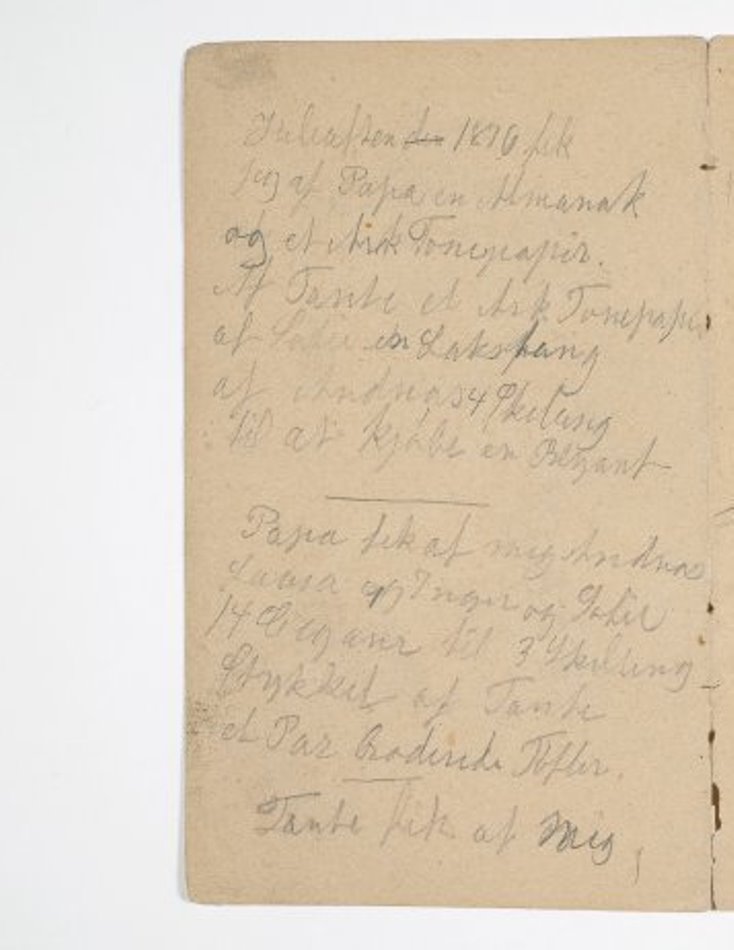 Juleaften den 1876 fik
jeg af Papa en Almanak
og et Ark Tonepapir.
Af Tante et Ark Tonepapir
af Sofie en Lakstang
af Andreas 4 Skilling
til at kjøbe en Blyant
Papa fik af mig Andreas
Laura og Inger og Sofie
14 Cigarer til 3 Skilling
Stykket af Tante
et Par Broderede Tøfler.
Tante fik af Mig